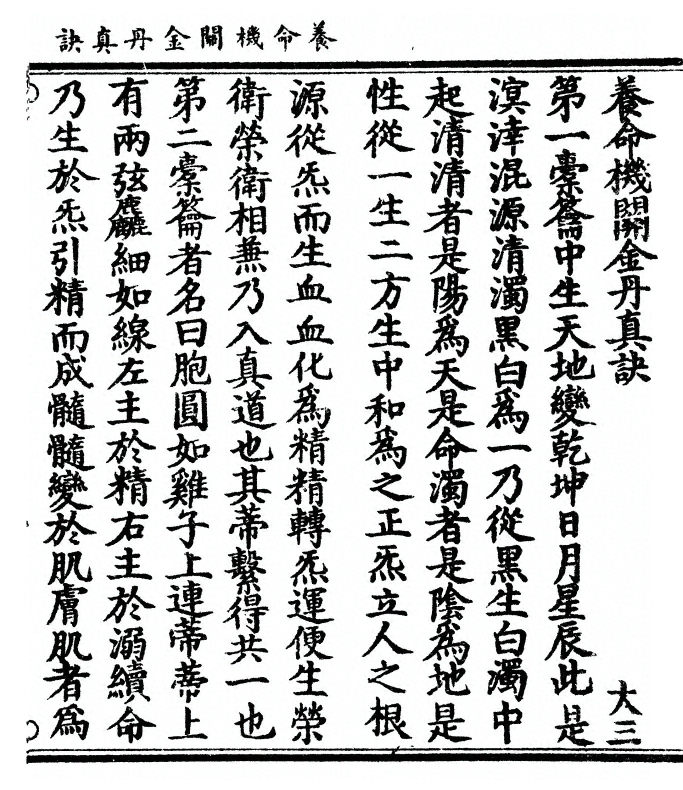 養命機關金丹真訣
養命機關金丹真訣 大三
第一橐籥中生天地變乾坤日月星辰此是
溟涬混源清濁黑白為一乃從黑生白濁中
起清清者是陽為天是命濁者是陰為地是
性從一生二方生中和為之正炁立人之根
源從炁而生血血化為精精轉炁運便生榮
衛榮衛相兼乃入真道也其蒂繫得共一也
第二橐籥者名曰胞圓如雞子上連蒂蒂上
有兩弦麤細如線左主於精右主於溺續命
乃生於炁引精而成髓髓變於肌膚肌者為